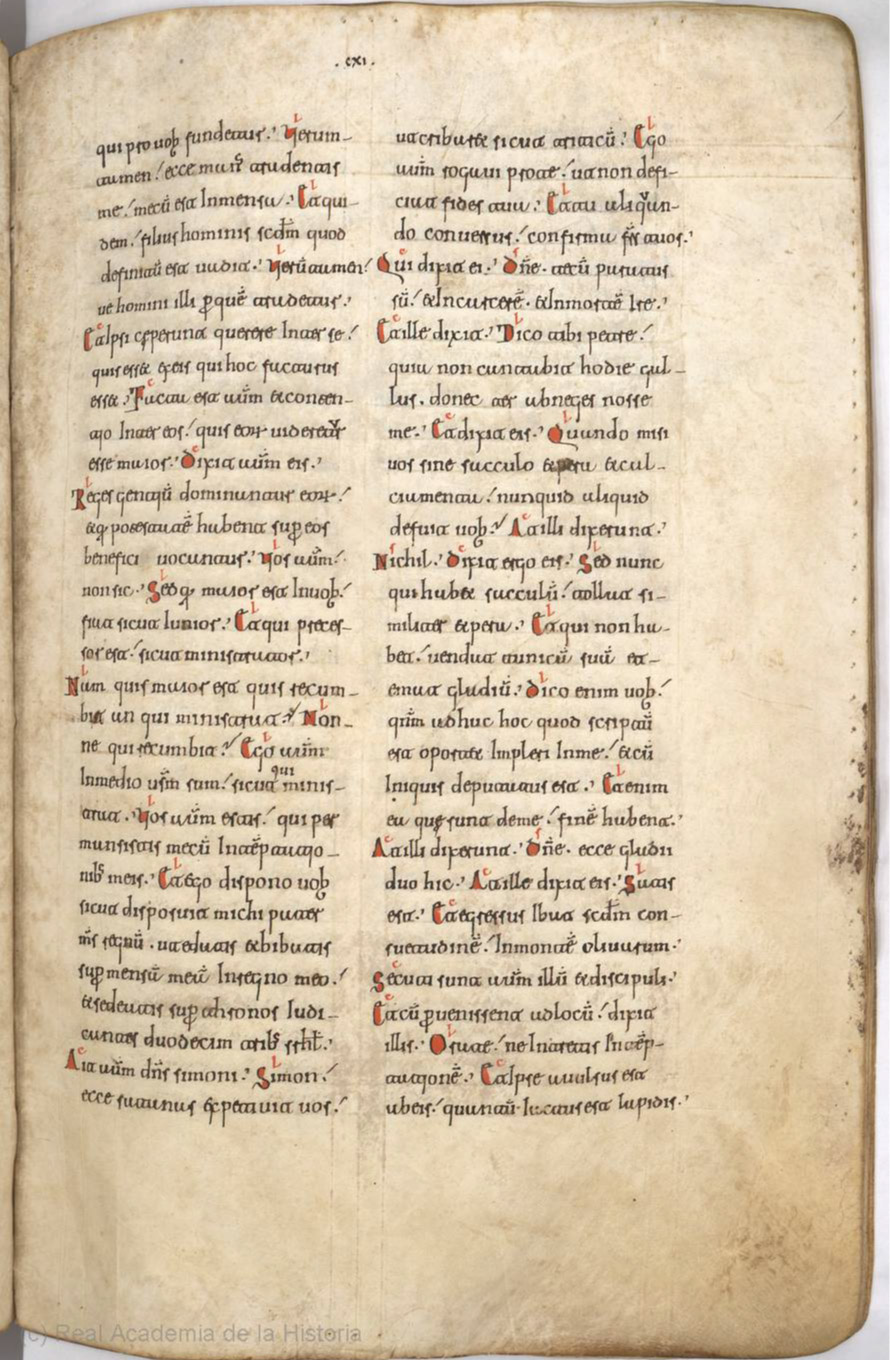 .cxi.
qui pro uob fundetur. Uerum-
tamen ecce mun͂ tradentis
me mecū est Inmensa. Et qui-
dem filius hominis scd̄m quod
definitū est uadit. Uerūtamen
ue homini illi ꝑ quē tradetur.
Et Ipsi cęperunt querere Inter se
quis esset exeis qui hoc facturus
esset. Facta est aum̄ etconten-
tio Inter eos quis eoꝝ uideretr̄
esse maior. Dixit aum̄ eis.
Reges gentiū dominantur eoꝝ
etq̄ potestatē habent suꝑ eos
benefici uocantur. Uos aum̄
non sic. Sed q̄ maior est Inuob
fiat sicut Iunior. Et qui preces-
sor est sicut ministrator.
Nam quis maior est quis recum-
bit an qui ministrat. Non-
ne qui recumbit. Ego aum̄
Inmedio us̄m sum sicut qui minis-
trat. Uos aum̄ estis qui per
mansistis mecū Intēptatio-
nib; meis. Et Ego dispono uob
sicut disposuit michi pater
m̄s regnū. utedatis etbibatis
suꝑ mensā meā Inregno meo.
etsedeatis suꝑ thronos Iudi-
cantes duodecim trib; srhl̄.
Ait aum̄ dn̄s simoni. Simon
ecce satanas expetiuit uos
utcribraret sicut triticū. Ego
aum̄ rogaui prote ut non defi-
ciat fides tua. Et tu aliqūan-
do conuersus confirma frs̄ tuos.
Qui dixit ei. Dn̄e. tecū paratus
sū etIncarcerē. etInmortē Ire.
Et ille dixit. Dico tibi petre
quia non cantabit hodie gal-
lus. donec ter abneges nosse
me. Et dixit eis. Quando misi
uos sine sacculo etpera etcal-
ciamenta nunquid aliquid
defuit uob. At illi dixerunt.
Nichil. Dixit ergo eis. Sed nunc
qui habet sacculū tollat si-
militer etpera. Et qui non ha-
bet uendat tunicā suā et-
emat gladiū. Dico enim uob
qn̄m adhuc hoc quod scriptū
est oportet Impleri Inme etcū
Iniquis deputatus est. Et enim
ea quę sunt deme finē habent.
At illi dixerunt. Dn̄e. ecce gladii
duo hic. At ille dixit eis. Satis
est. Et egressus Ibat scd̄m con-
suetudinē Inmontē oliuarum.
Secuti sunt aum̄ illū etdiscipuli.
Et cū ꝑuenissent adlocū dixit
illis. Orate ne Intretis Intēp-
tationē. Et Ipse auulsus est
abeis quantū Iactus est lapidis.
(c) Real Academia de la Historia